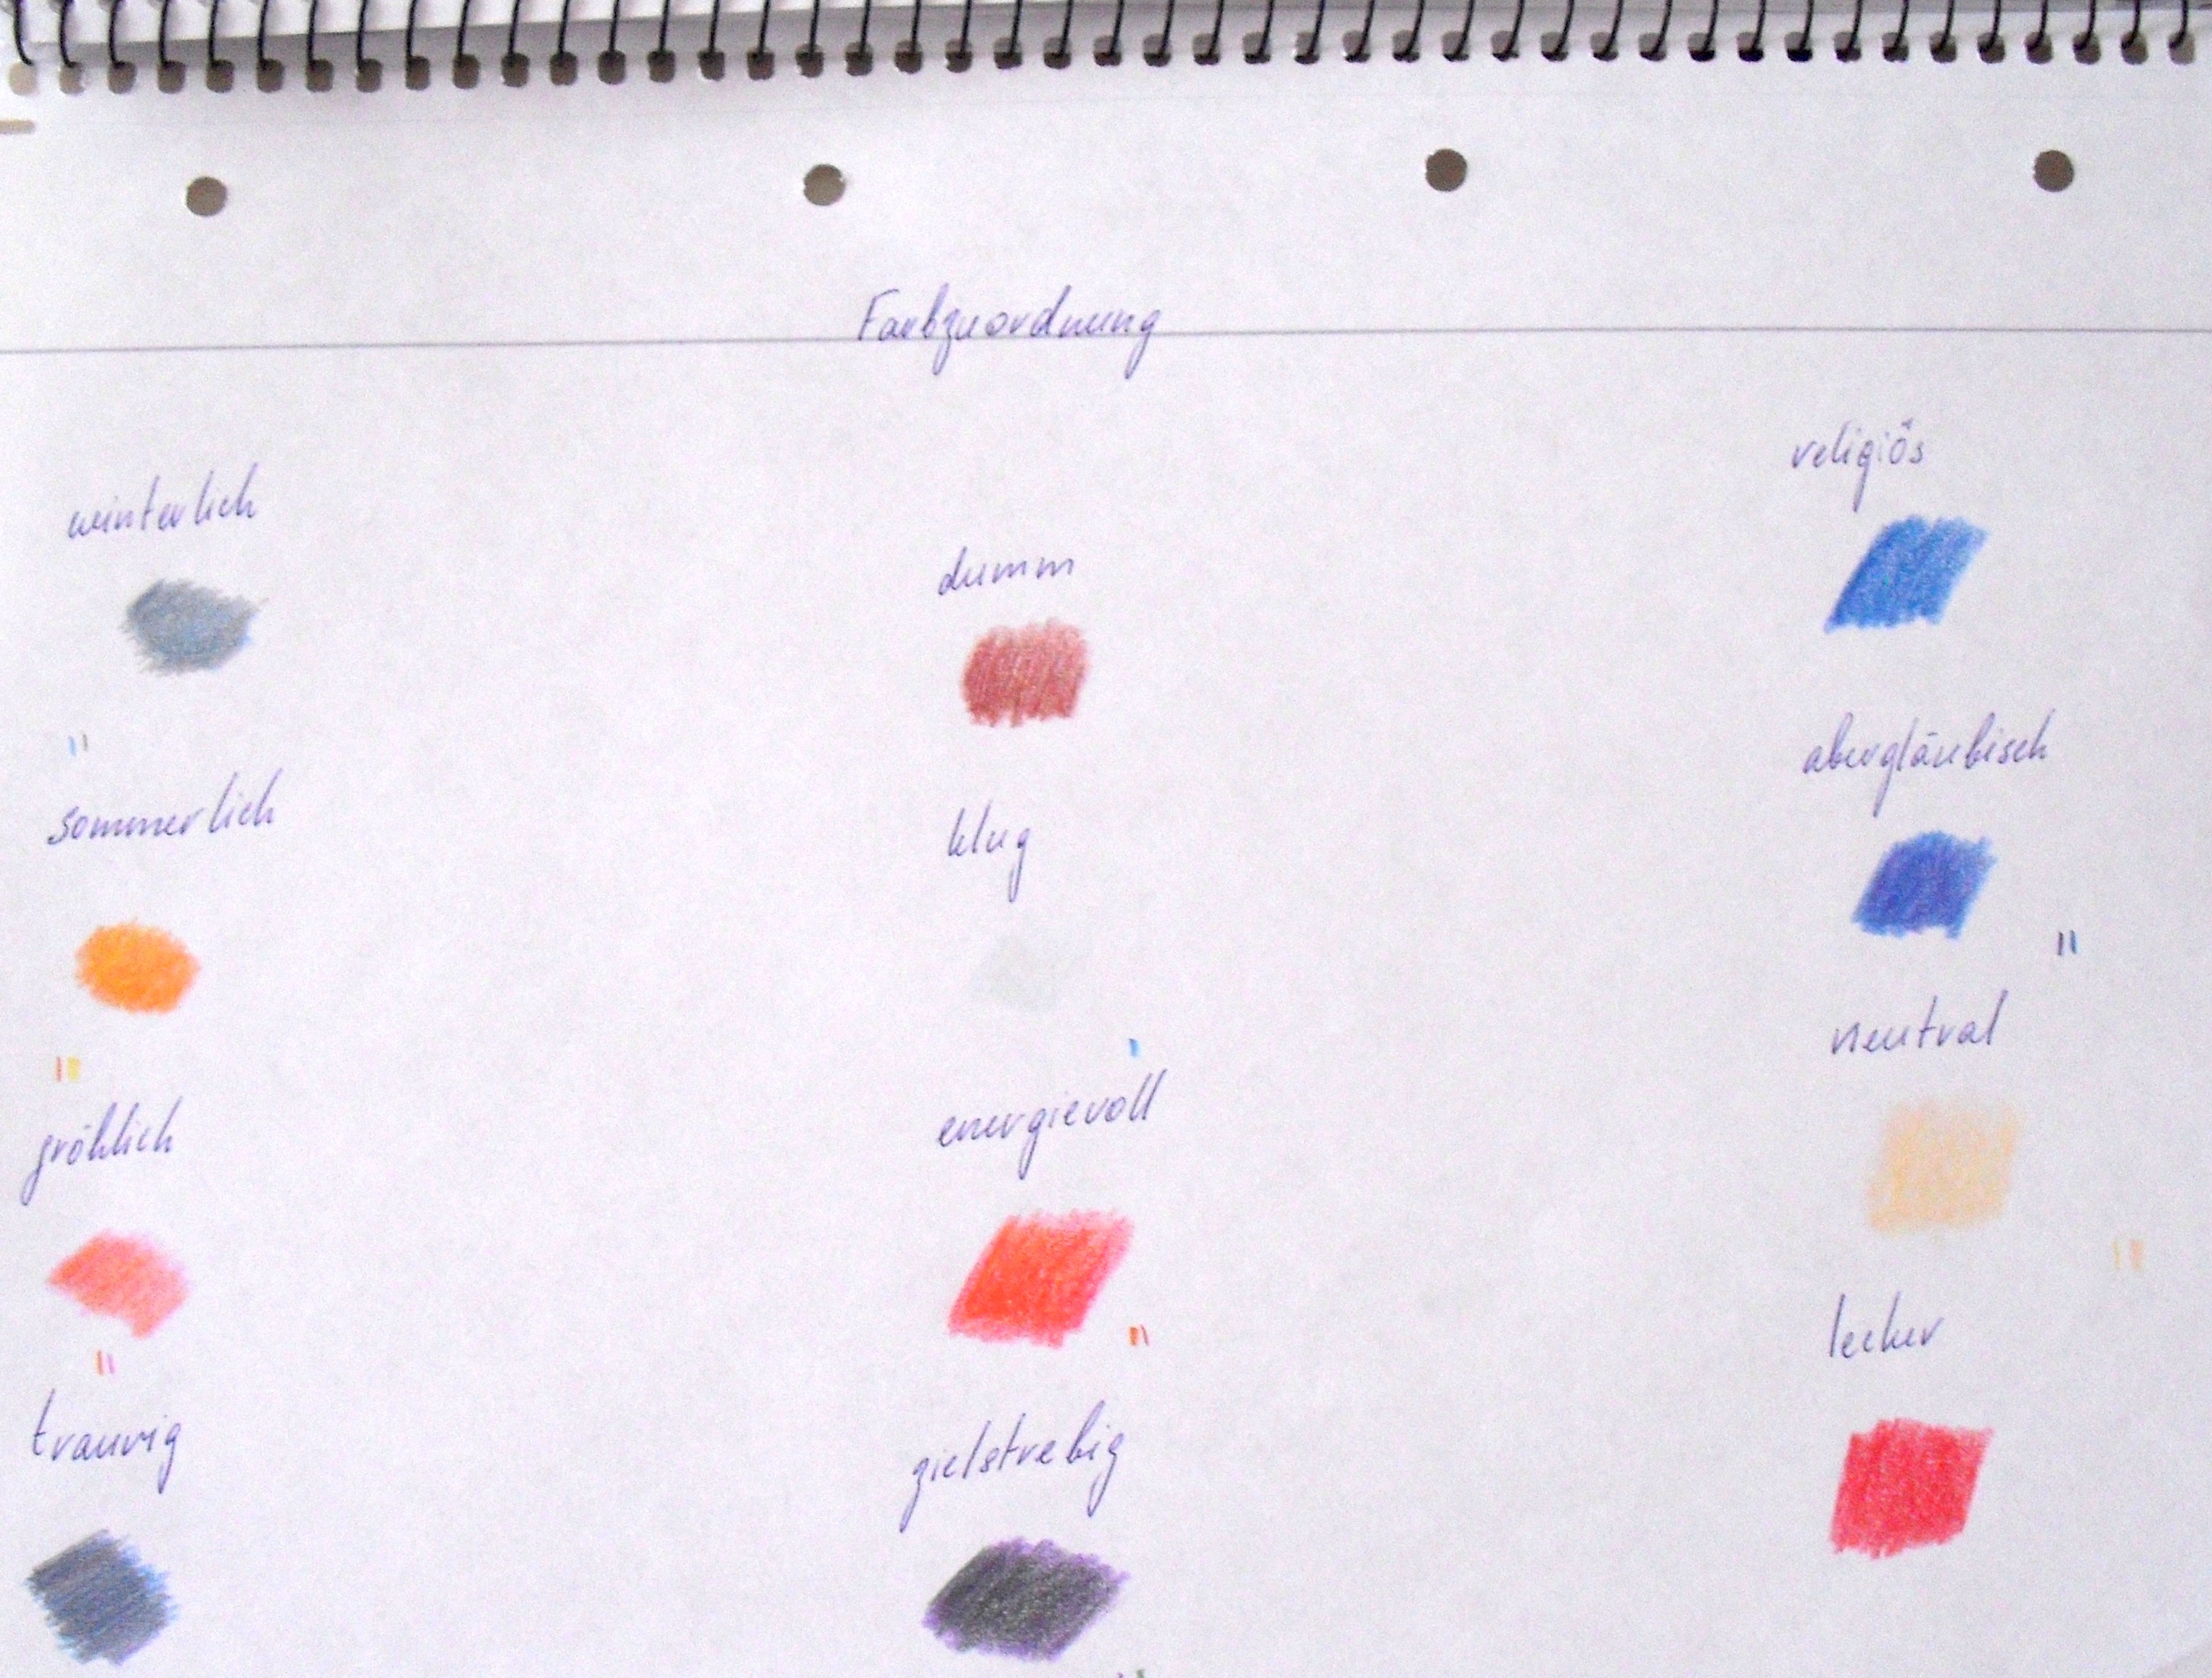 Farbzuordnung
winterlich
sommerlich
fröhlich
traurig
dumm
klug
energievoll
zielstrebig
religiös
abergläubisch
neutral
lecker